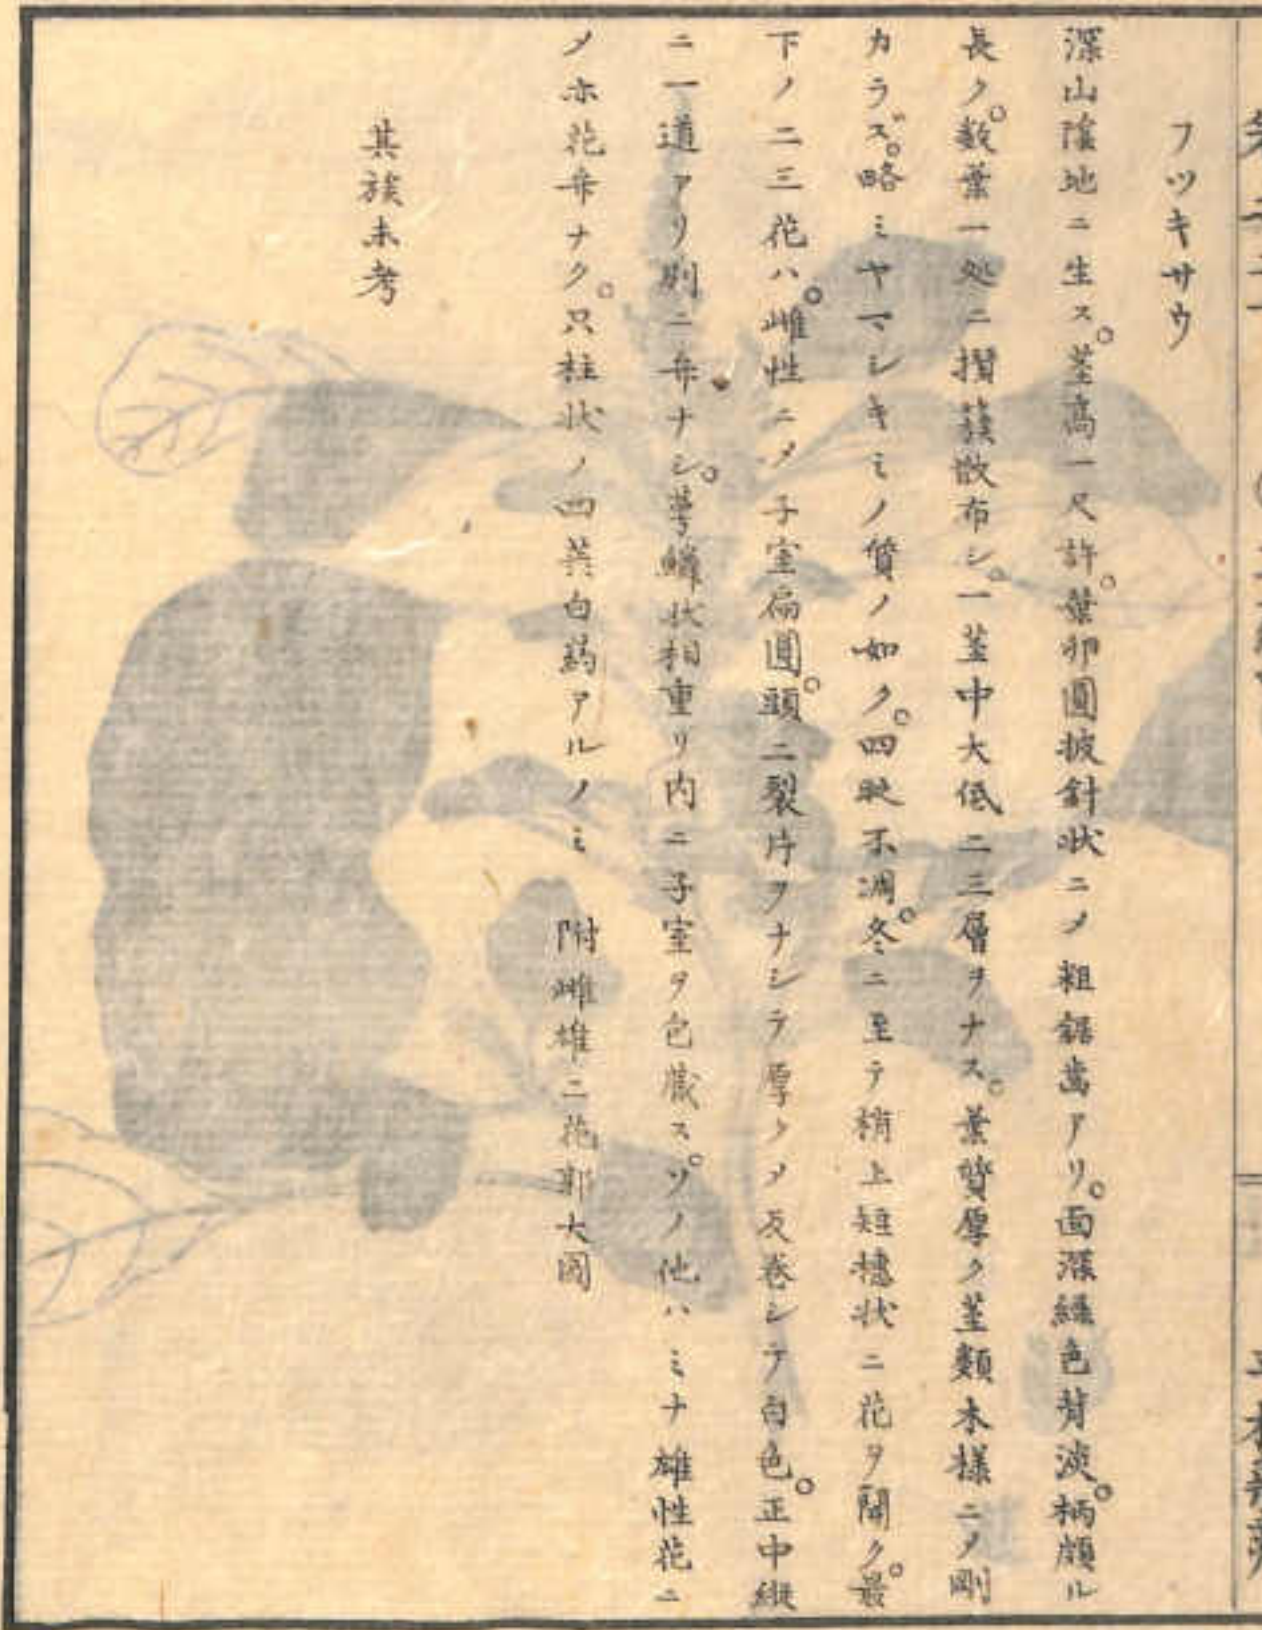 フツキサウ
深山陰地ニ生ス。莖高一尺許。葉卵圓披針状ニメ粗鋸歯アリ。面深緑色背淡。柄頗ル
長ク。数葉一処ニ攅簇散布シ。一莖中大低二三層ヲナス。葉質厚ク莖類木様ニメ剛
カラズ。略ミヤマシキミノ質ノ如ク。四時不凋。冬ニ至テ梢上短穂状ニ花ヲ開ク。最
下ノ二三花ハ。雌性ニメ子室扁圓。頭二裂片ヲナシテ厚クメ反巻シテ白色。正中縦
ニ一道アリ別ニ弁ナシ。萼鱗状相重リ内ニ子室ヲ包蔵ス。ソノ他ハミナ雄性花ニ
メ亦花弁ナク。只柱状ノ四英白葯アルノミ 附雌雄二花郭大図
其族未考